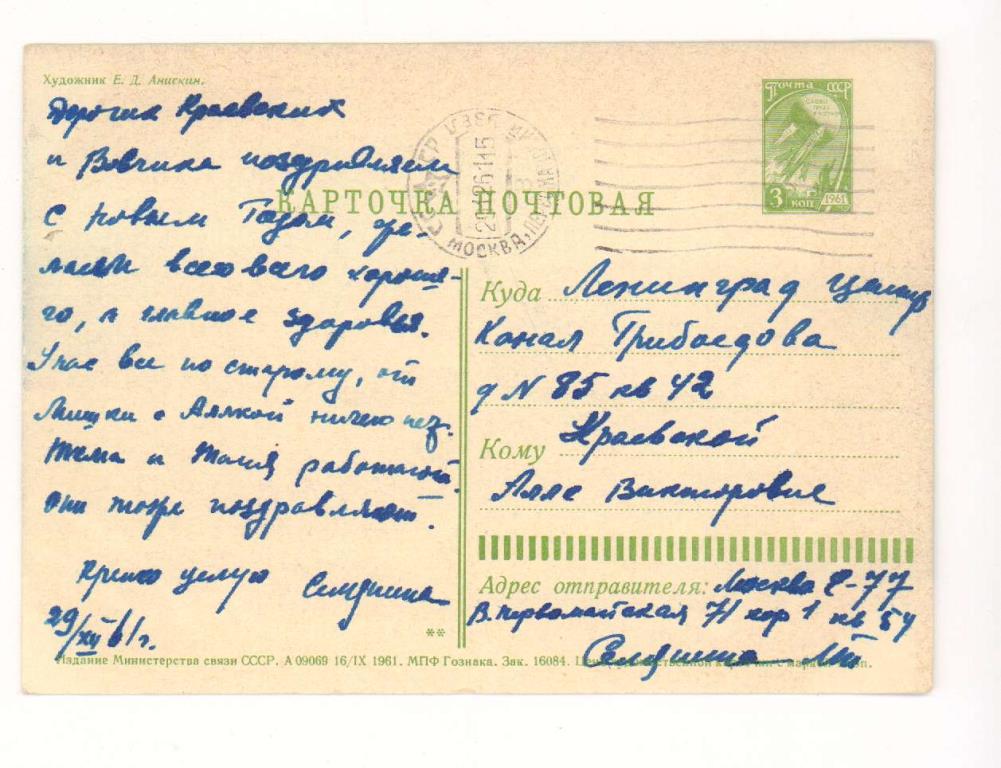 Художник Е. Д. Анискин.
Дорогих Краевских
и Вовчика поздравляем
с новым Годом, же-
лаем всего всего хороше-
го, а главное здоровья.
У нас все по старому, от
Мишки с Аллкой ничего нет.
Тема и Таня работают.
Они тоже поздравляют.
Крепко целую
29/XII 61 г.
**
ПОЧТА СССР
3 КОП
1961
СССР
МОСКВА
КАРТОЧКА ПОЧТОВАЯ
Куда Ленинград центр
Канал Грибоедова
д N 85 кв 42
Кому Краевской
Алле Викторовне
Адрес отправителя: Москва Е-77
В. Первомайская 71 кор 1 кв 54
Издание Министерства связи СССР. А 09069 16/IX 1961. МПФ Гознака. Зак. 16084.